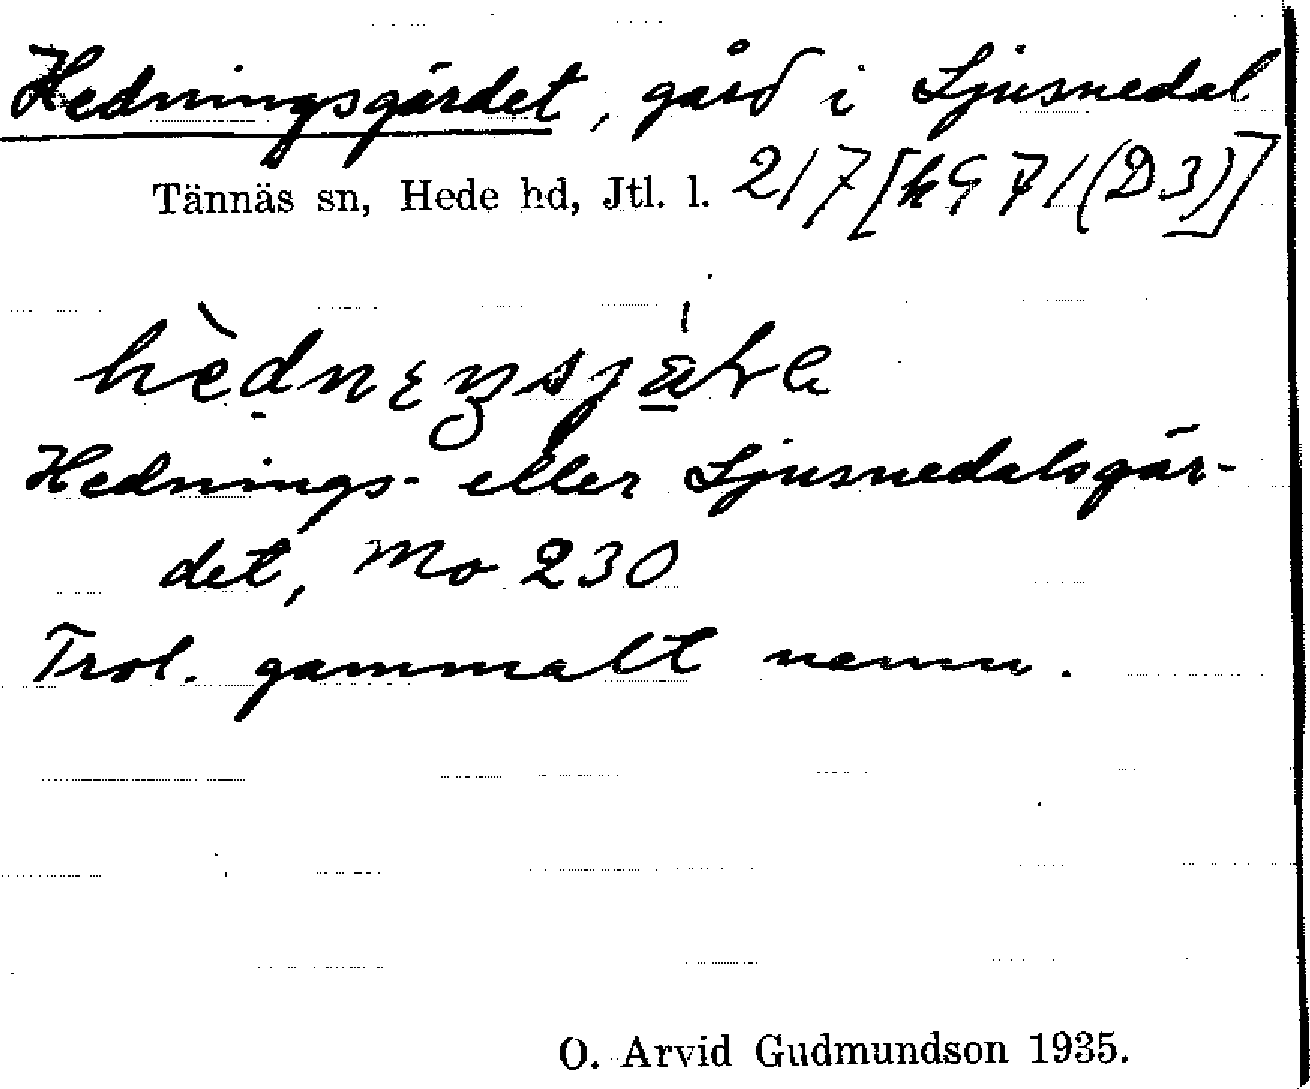 Hedningsgärdet, gård i Ljusnedal
Tännäs sn, Hede hd, Jtl. l. 217 [k971(D3)]
Hednings- eller Ljusnedalsgär-
det, Mo 230
Trol. gammalt namn.
O. Arvid Gudmundson 1935.